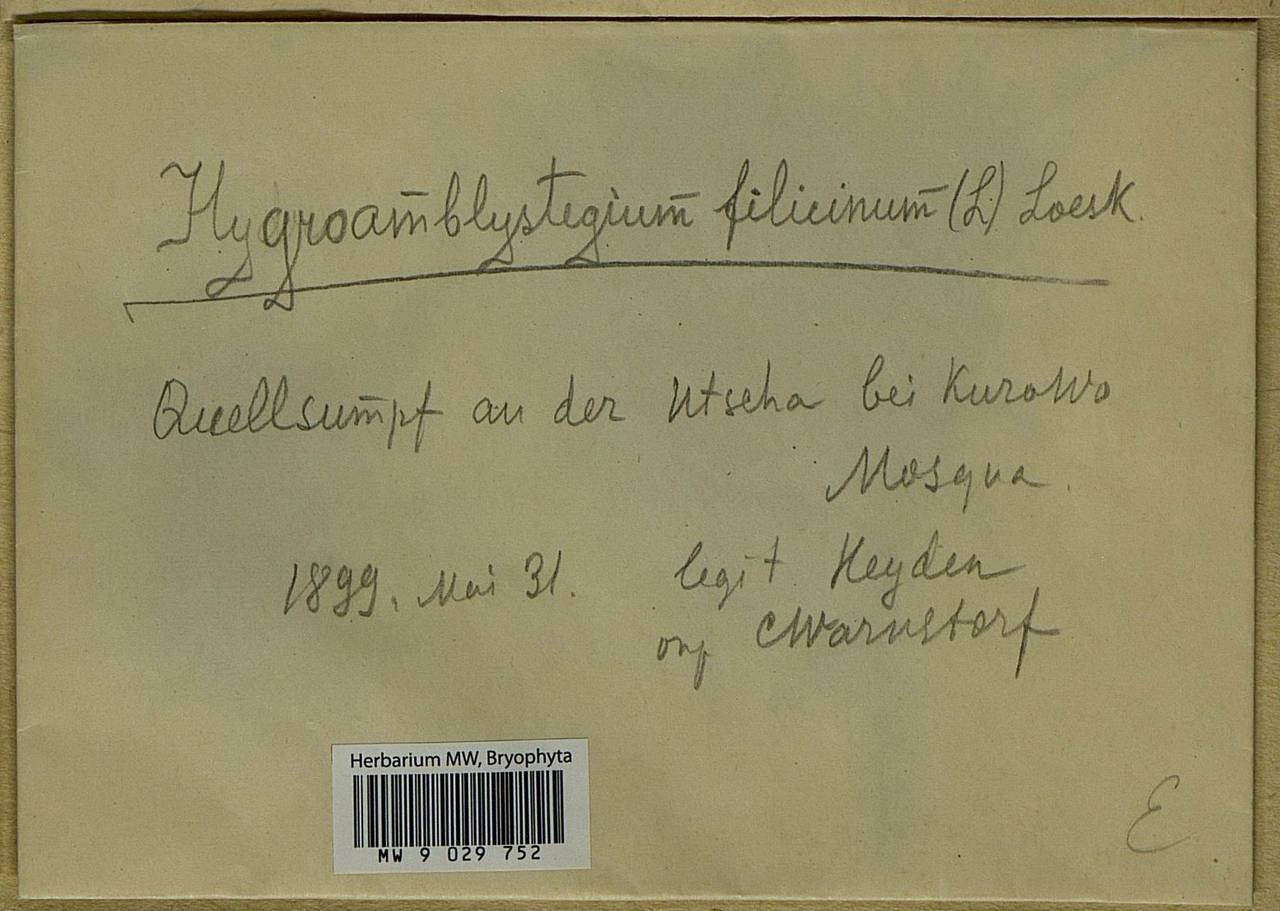 Hygroamblystegium filicinum (L) Loesk.
Quellsumpf an der Utscha bei Kurowo
Mosqua.
1899. Mai 31. legit Heyden
опр CWarnstorf
Herbarium MW, Bryophyta
MW 9 029 752
E